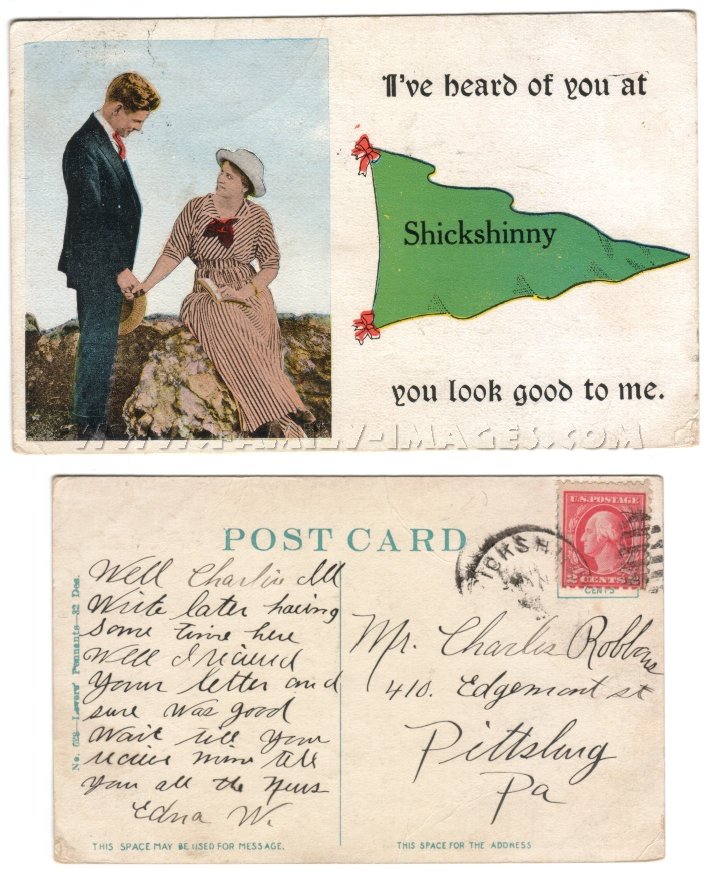 I've heard of you at
Shickshinny
you look good to me.
WWW.FAMILY-IMAGES.COM
POST CARD
U.S. POSTAGE
2 CENTS 2
CENTS
No. 628—Lovers' Pennants—32 Des.
Well Charlie Ill
Write later having
some time here
Well I recieved
your letter and
sure was good
Wait till you
recieve mine tell
you all the News
Edna W.
Mr. Charles
410. Edgemont st
Pittsburg
Pa
THIS SPACE MAY BE USED FOR MESSAGE.
THIS SPACE FOR THE ADDRESS